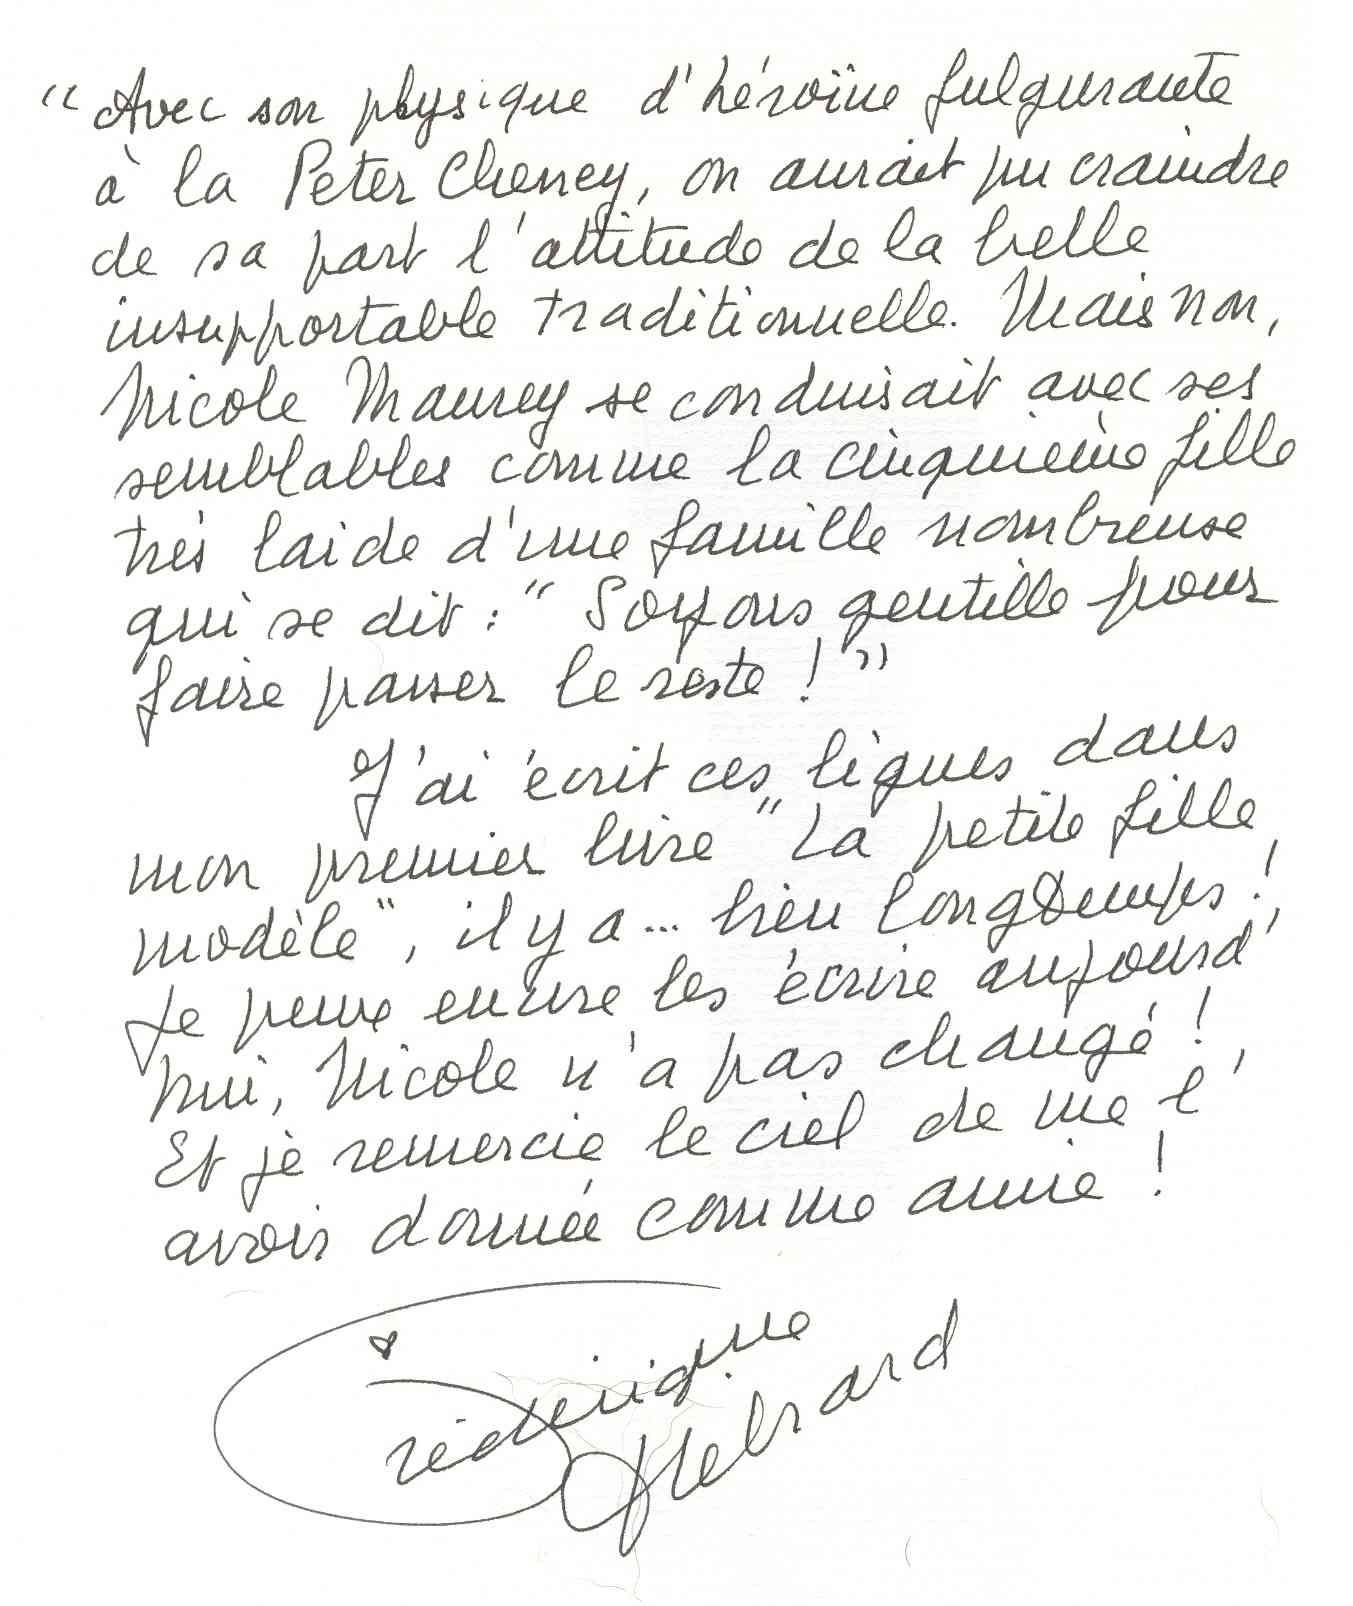 “Avec son physique d'héroïne fulgurante
à la Peter Cheney, on aurait pu craindre
de sa part l'attitude de la belle
insupportable traditionnelle. Mais non,
Nicole Maurey se conduisait avec ses
semblables comme la cinquième fille
très laide d'une famille nombreuse
qui se dit : “Soyons gentille pour
faire passer le reste ! ”
J'ai écrit ces lignes dans
mon premier livre “La petite fille
modèle”, il y a... bien longtemps !
Je peux encore les écrire aujourd'
hui, Nicole n'a pas changé !
Et je remercie le ciel de me l'
avoir donnée comme amie !
Frédérique
Hebrard